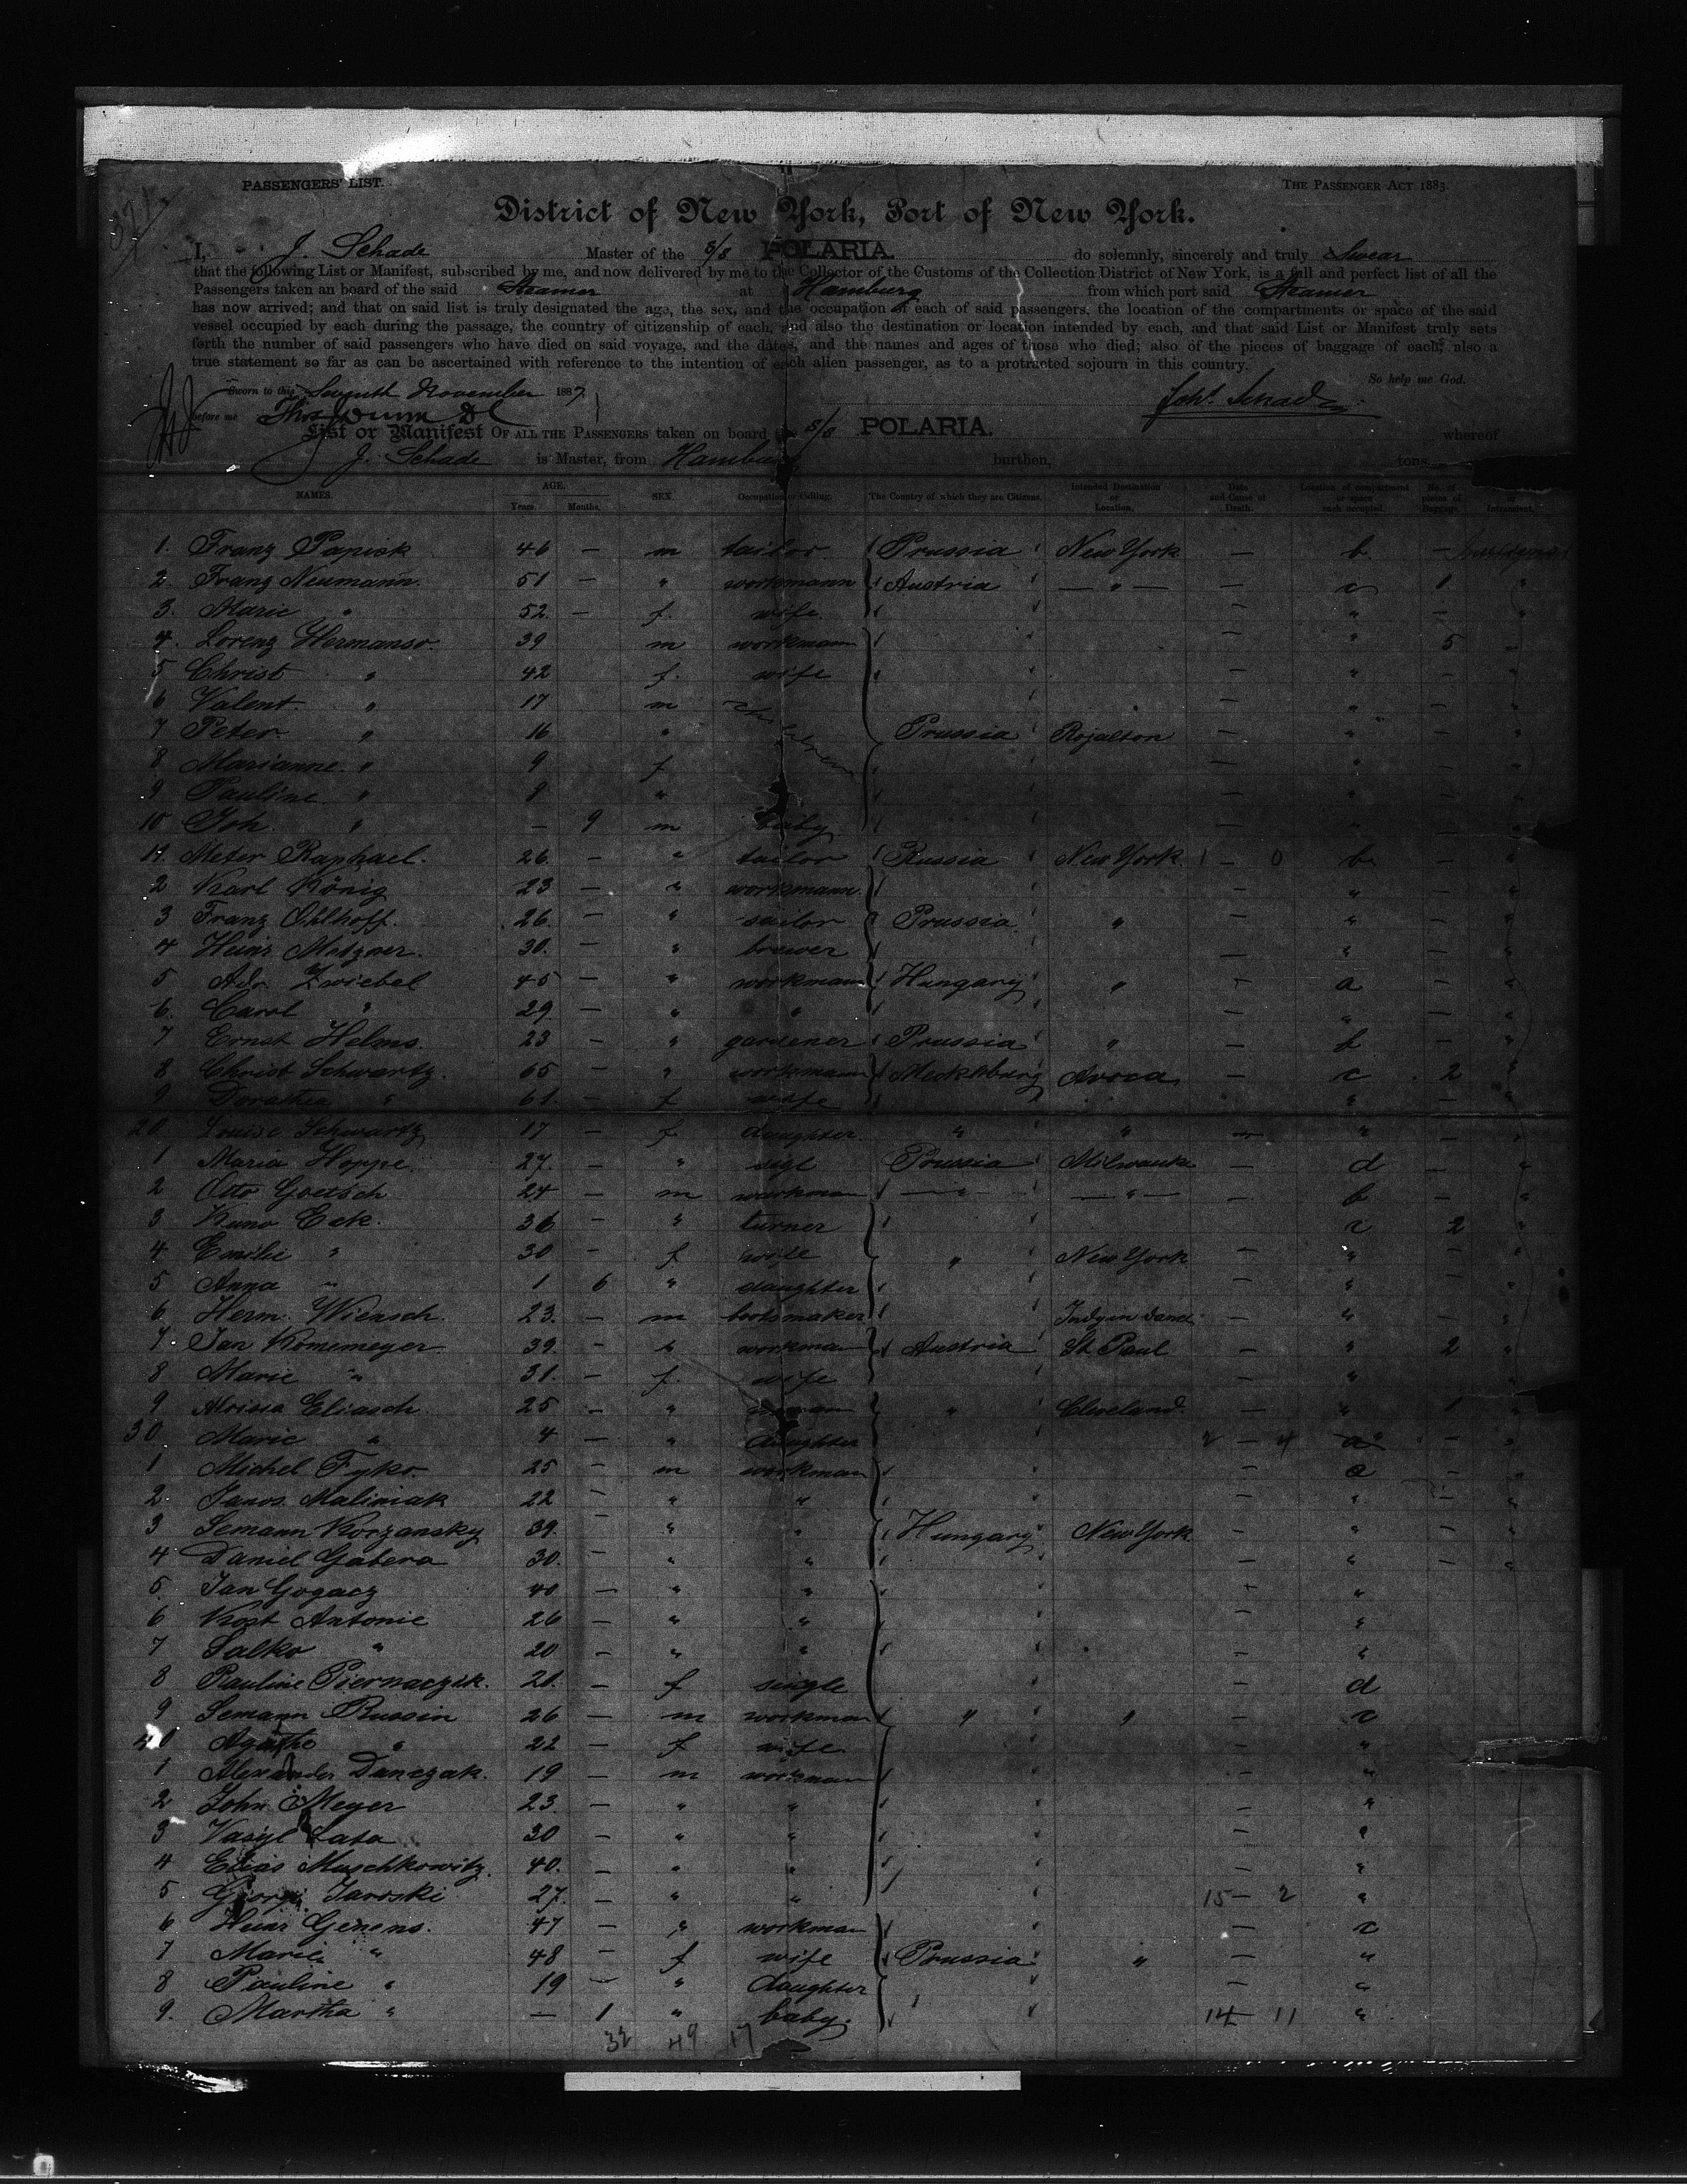 PASSENGERS' LIST. THE PASSENGER ACT 1883
District of New York, Port of New York.
I, J. Schade Master of the S/S POLARIA. do solemnly, sincerely and truly Swear
that the following List or Manifest, subscribed by me, and now delivered by me to the Collector of the Customs of the Collection District of New York, is a full and perfect list of all the
Passengers taken an board of the said Steamer at Hamburg from which port said Steamer
has now arrived; and that on said list is truly designated the age, the sex, and the occupation of each of said passengers, the location of the compartments or space of the said
vessel occupied by each during the passage, the country of citizenship of each, and also the destination or location intended by each, and that said List or Manifest truly sets
forth the number of said passengers who have died on said voyage, and the dates, and the names and ages of those who died; also of the pieces of baggage of each; also a
true statement so far as can be ascertained with reference to the intention of each alien passenger, as to a protracted sojourn in this country.
So help me God.
Sworn to this Seventh November 1887.
before me
List or Manifest OF ALL THE PASSENGERS taken on board the S/S POLARIA. whereof
J. Schade is Master, from Hamburg burthen, tons
NAMES. AGE. Years. Months. SEX. Occupation or Calling. The Country of which they are Citizens. Intended Destination or Location. Date and Cause of Death. Location of compartment or space each occupied. No. of pieces of Baggage.
1. Franz Papisk 46 — m tailor Prussia New York — b. —
2. Franz Neumann. 51 — " workmann Austria — " — — c 1. "
3. Marie " 52. — f. wife — " — "
4. Lorenz Hermanso 39 m workmann — " 5 "
5 Christ " 42 f. wife — " — "
6 Valent. " 17 m children — " — "
7 Peter " 16 " Prussia Rojalton — " — "
8 Marianne. " 9 f — " — "
9 Pauline " 8 " — " — "
10 Joh. " — 9 m baby. — " — "
11. Meter Raphael. 26. — " tailor Russia New York 1 — 0 b — "
2 Karl König 23 — " workmann. — " — "
3 Franz Ohlhoff. 26. — " sailor Prussia " — " — "
4 Heinr Metzner. 30. — " brewer — " — "
5 Adr. Zwiebel 45 — " workmann Hungary " — a — "
6. Carol " 29 — " " — " — "
7 Ernst Helms. 23 — " gardener Prussia " — b — "
8 Christ Schwartz. 65 — " workmann Mecklburg Avoca — c 2 "
9 Dorothea " 61. — f wife " — "
20 Louise Schwartz 17 — f daughter. " " — " — "
1 Maria Hoppe. 27. — " sigl Prussia Milwauke — d — "
2 Otto Goetsch 24 — m workman — " — — " — — b — "
3 Kuno Eck. 36 — " turner c 2 "
4. Emilie " 30 — f wife " New York — " — "
5 Anna " 1 6 " daughter — " — "
6. Herm. Wiensch. 23. — m bootsmaker — " — "
7. Jan Komemeyer 39. — " workman Austria St. Paul — " 2 "
8 Marie " 31. — f. wife — "
9 Aloisia Eliasch. 25 — " " Cleveland. — " 1 "
30 Marie " 4 — " daughter 2 — 4 a — "
1 Michel Fyko. 25 — m workman — a — "
2. Janos Maliniak 22 — " " — " — "
3 Semann Korzansky 39. — " " Hungary New York — " — "
4 Daniel Gabera 30. — " " — " — "
5. Jan Gogacz 40 — " " — "
6 Kost Antonie 26 — " " — "
7 Salko " 20 — " " — "
8 Pauline Piernaczik. 20. — f single — d
9 Semann Russin 26 — m workman " " — c
40 Agathe " 22 — f wife — "
1 Alexander Danczak. 19 — m workmann — "
2 John Meyer 23. — " " — "
3 Vasyl Lata 30 — " " — "
4 Elias Muschkowitz. 40. — " " — "
5 Georg Jaroski 27. — " " 15 — 2 "
6 Heinr Genens. 47 — " workman — c
7 Marie " 48 — f wife Prussia " — "
8 Pauline " 19 — " daughter — "
9. Martha " — 1 " baby. 14 — 11 "
32 49 17